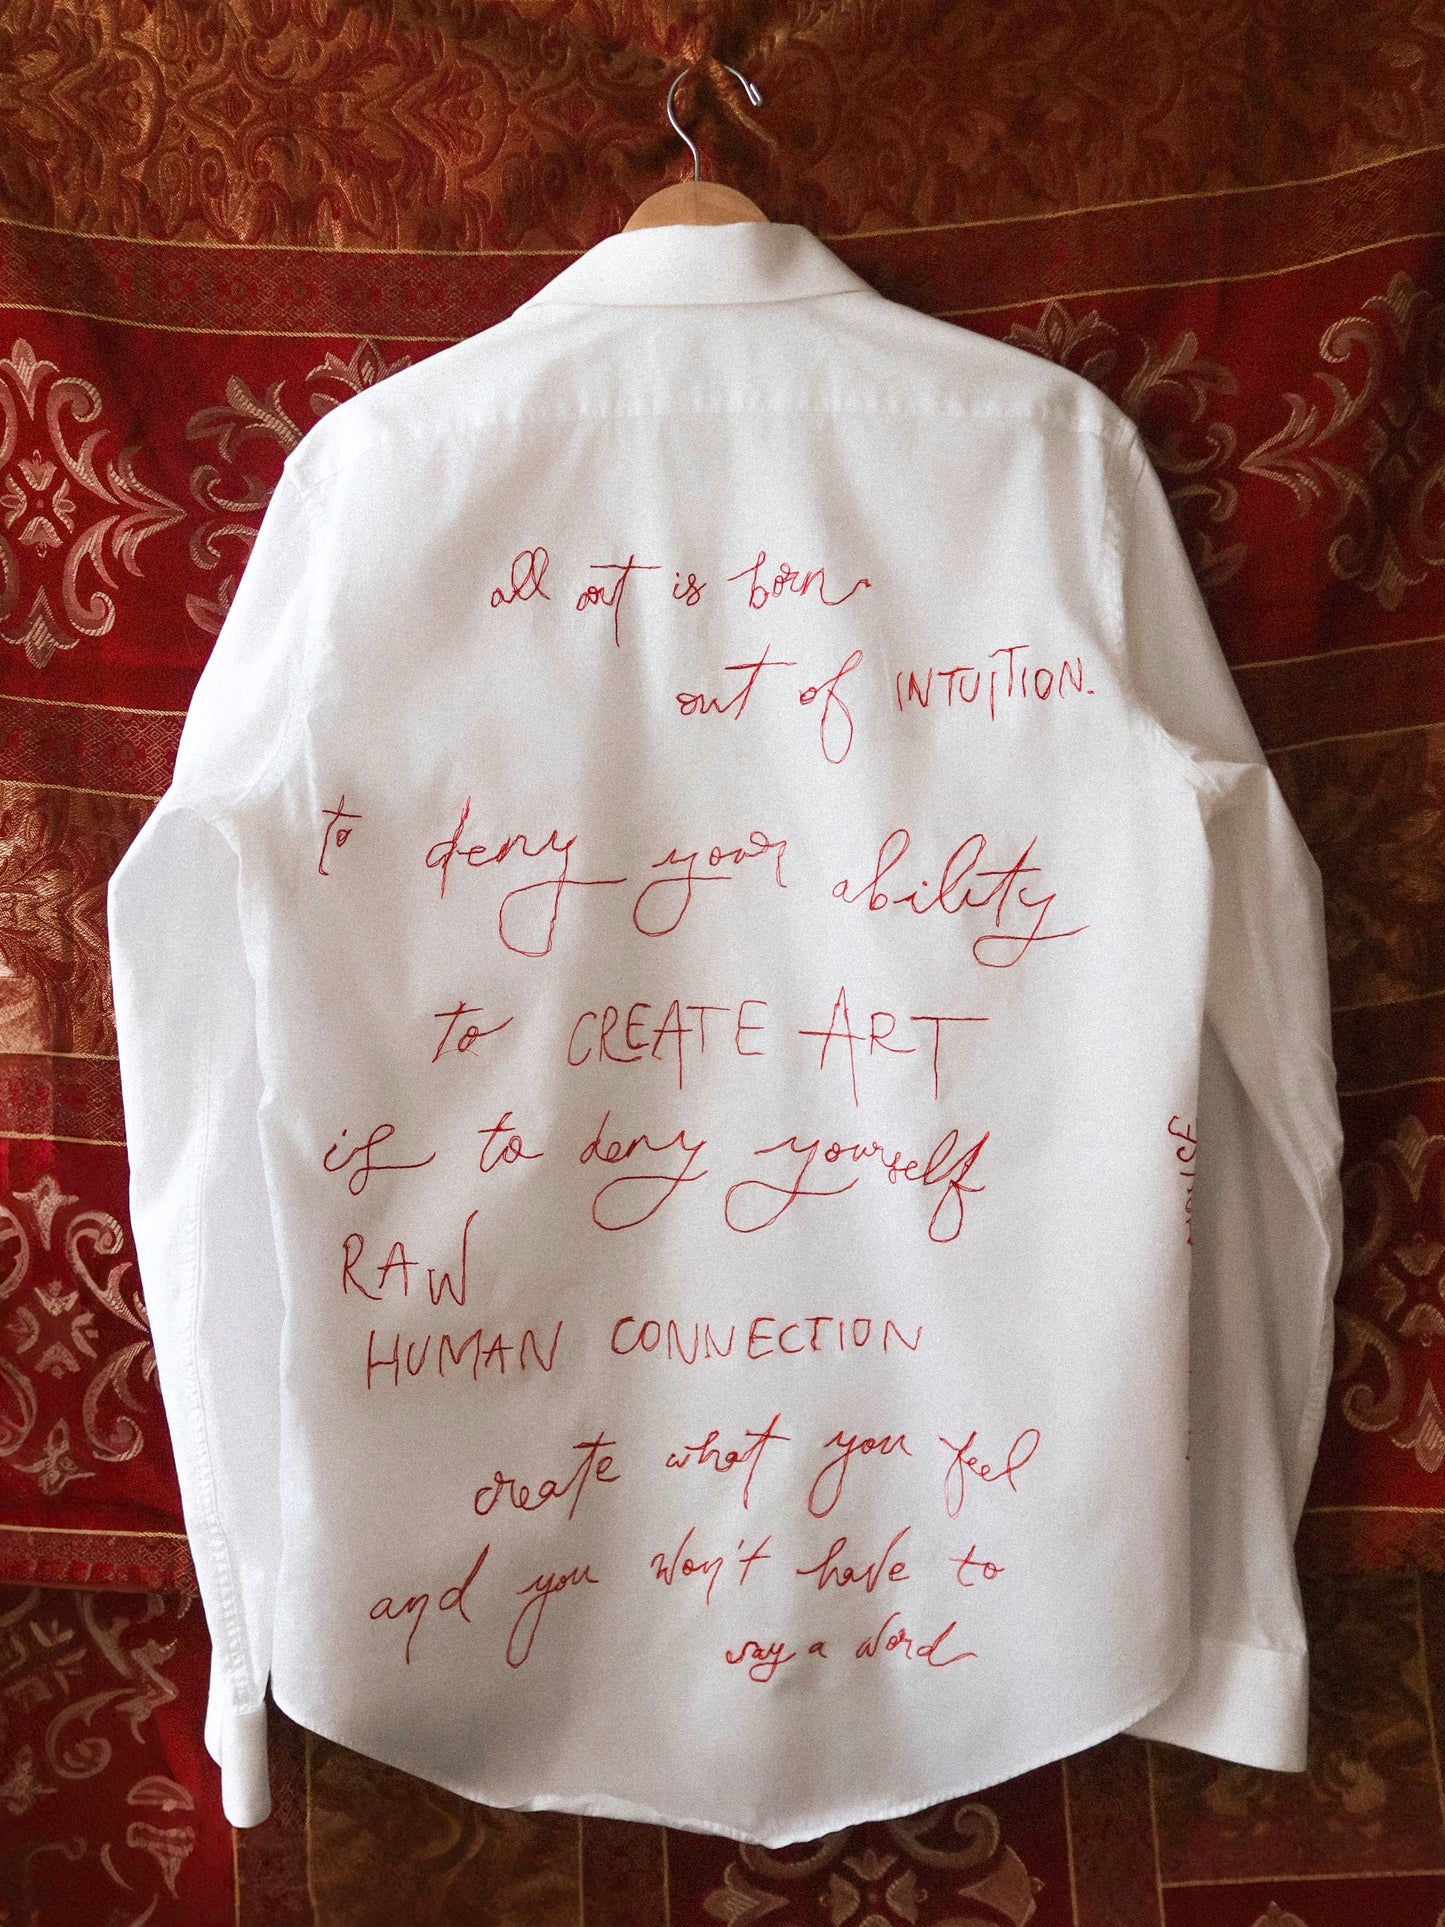 all art is born
out of INTUITION.
to deny your ability
to CREATE ART
is to deny yourself
RAW
HUMAN CONNECTION
create what you feel
and you won't have to
say a word